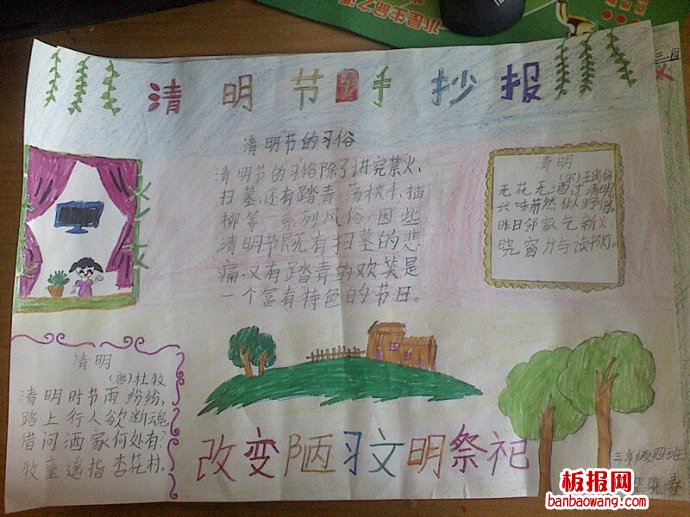 清明节手抄报
清明节的习俗
清明节的习俗除了讲究禁火、
扫墓,还有踏青、荡秋千、插
柳等一系列风俗,因此
清明节既有扫墓的悲
痛,又有踏青的欢笑是
一个富有特色的节日。
清明
无花无酒过清明
兴味萧然似野僧。
昨日邻家乞新火,
晓窗分与读书灯。
清明
(唐)杜牧
清明时节雨纷纷,
路上行人欲断魂
借问酒家何处有?
牧童遥指杏花村。
改变陋习文明祭祀
三年级四班
板报网
banbaowang.com